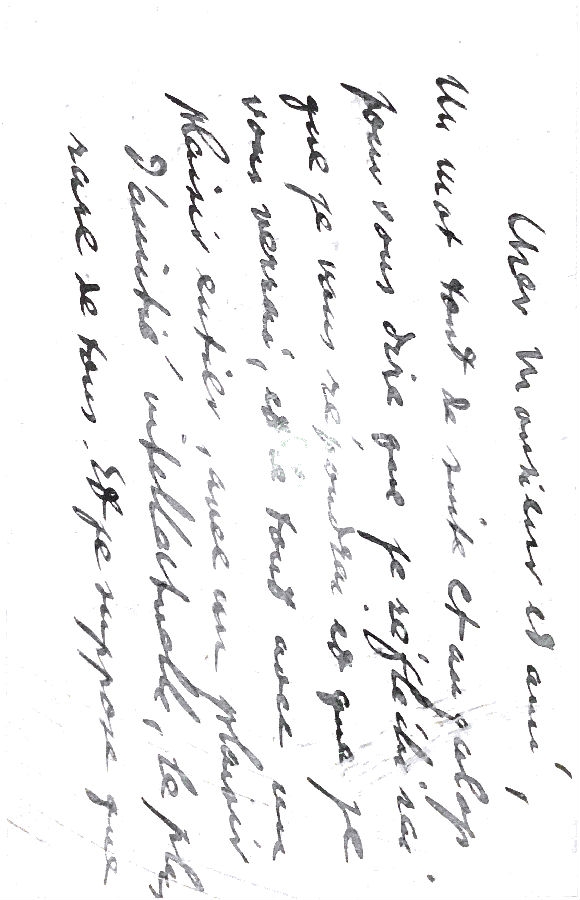 Cher Monsieur et ami,
Un mot tout de suite et au galop
pour vous dire que je réfléchirai.
que je vous répondrai et que je
vous verrai, et le tout avec un
plaisir entier, avec un plaisir
d'amitié intellectuelle, le plus
rare de tous. Et je suppose que